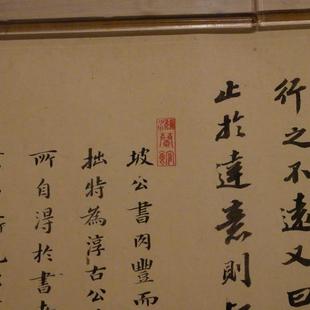 行之不遠又曰
止於達意則
坡公書肉豐而
拙特為淳古公
所自得於書